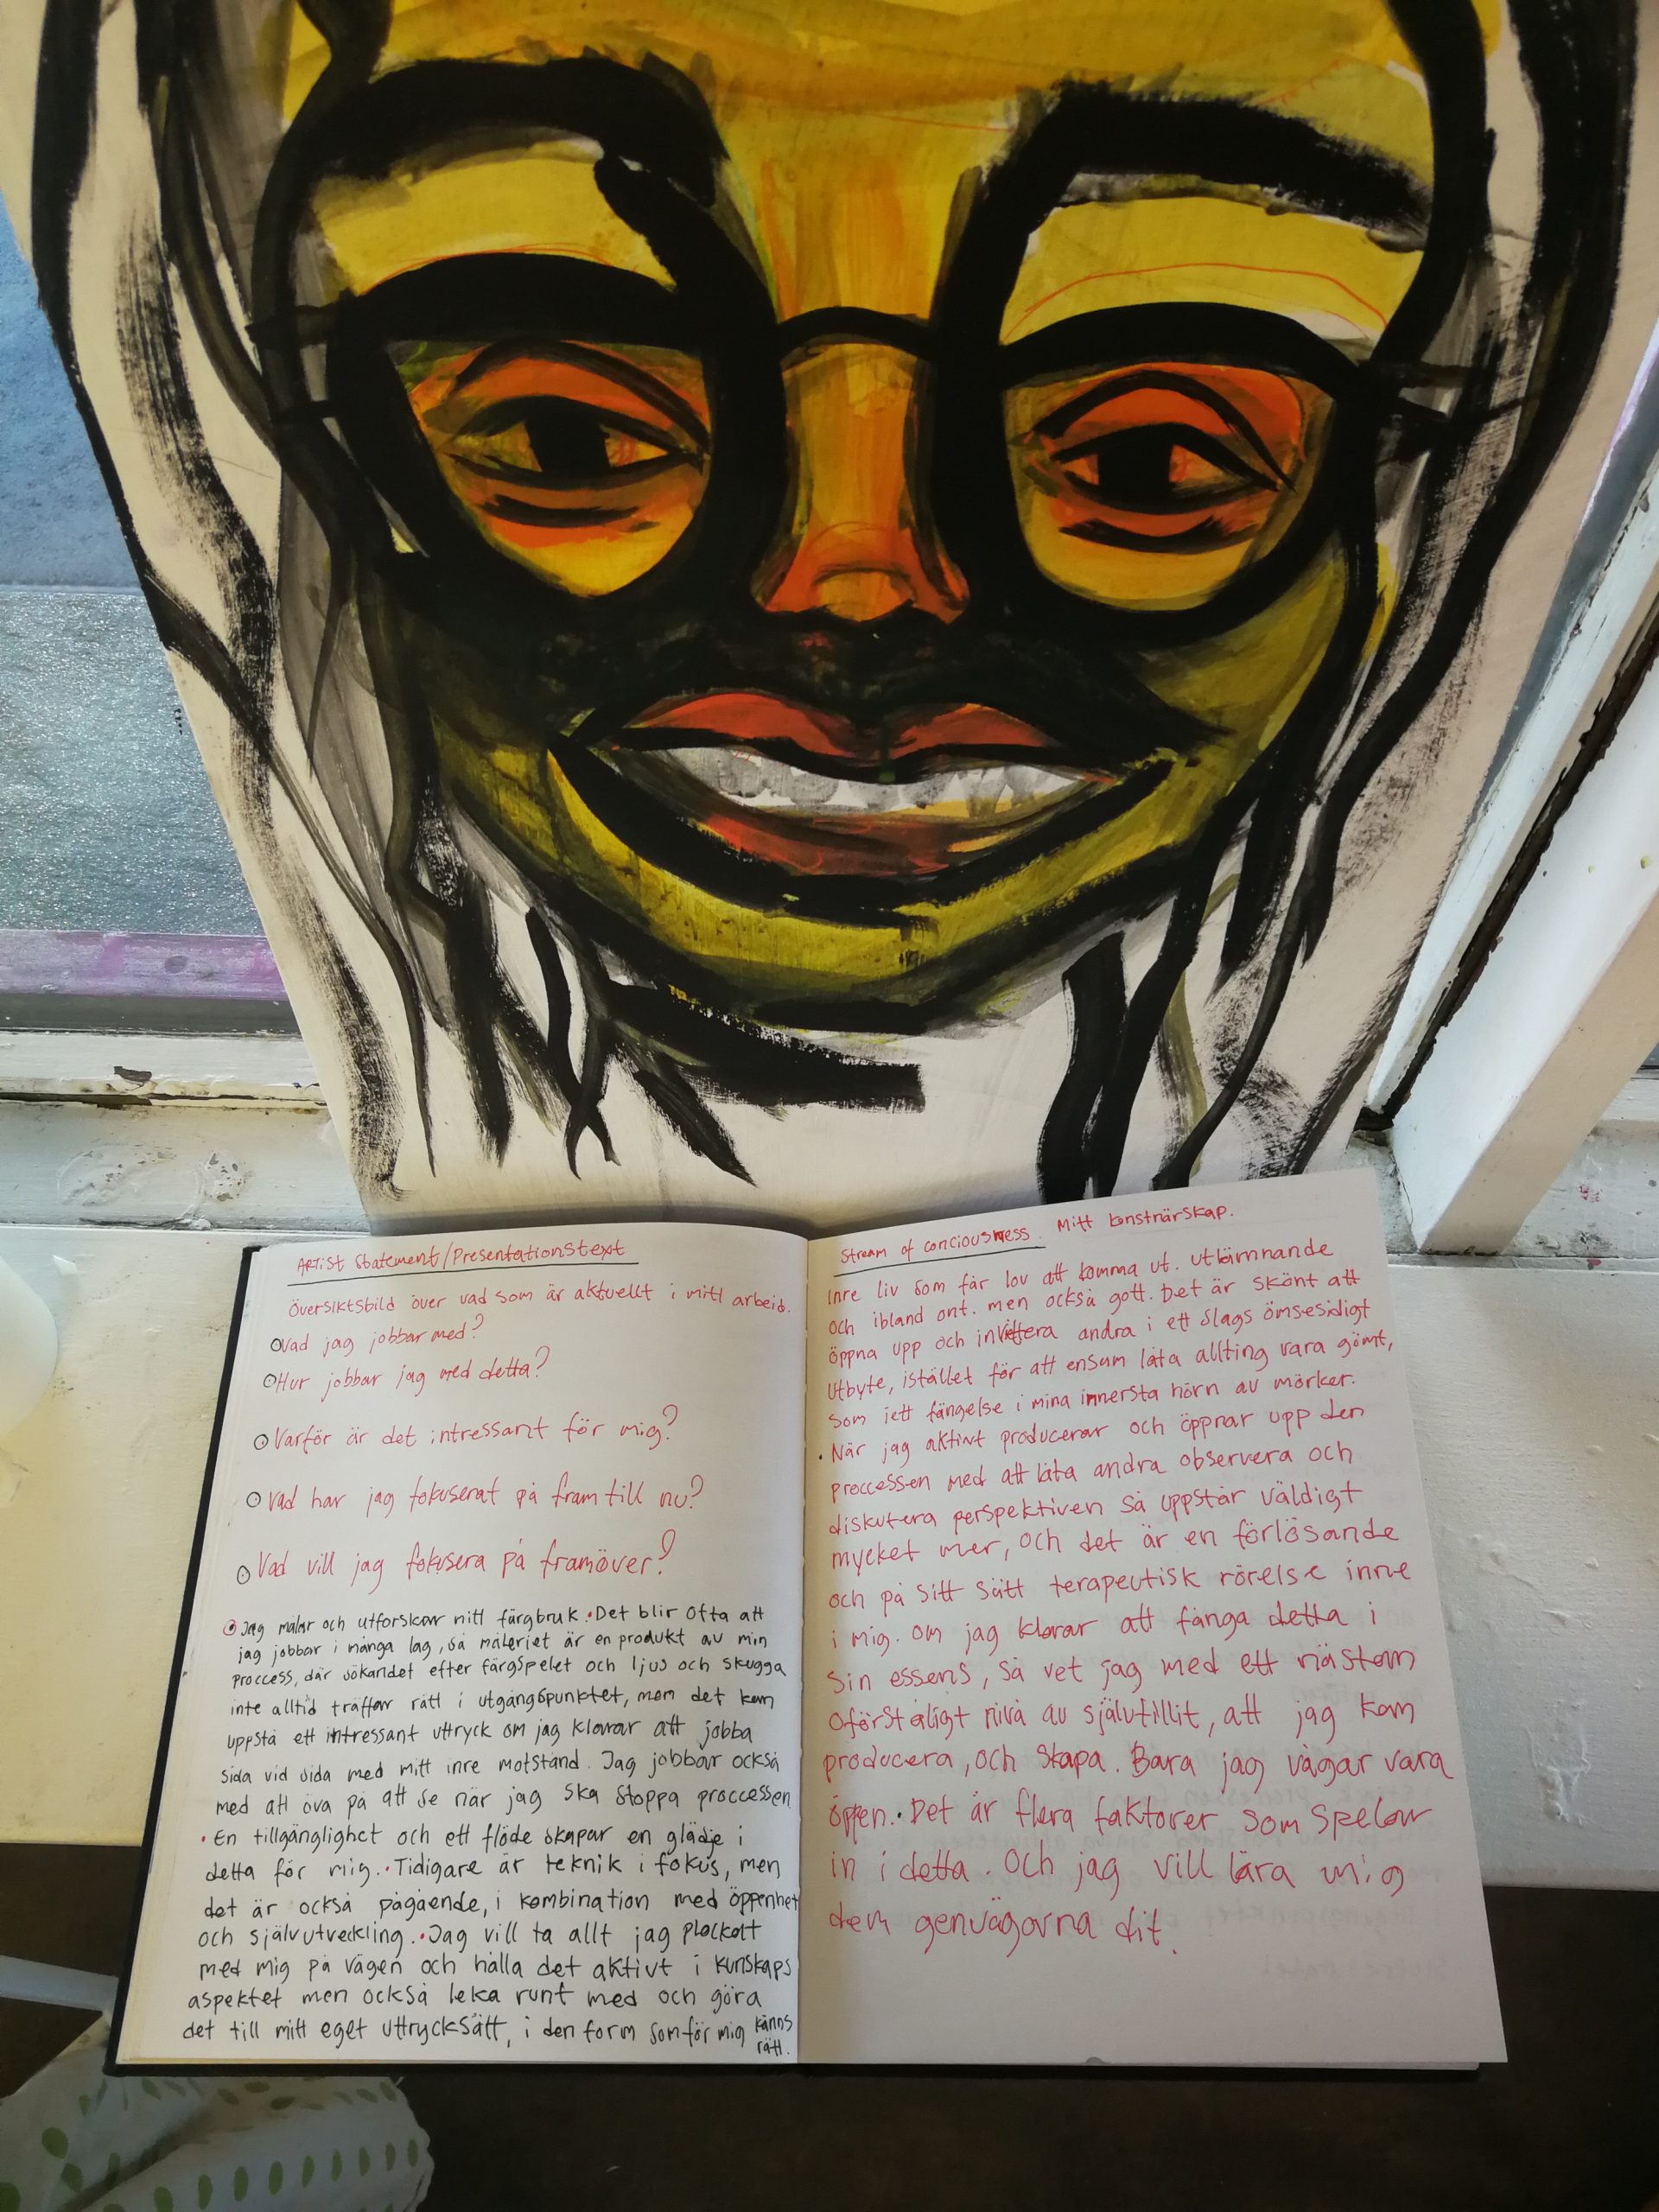 ARTist Statement/Presentationstext
Översiktsbild över vad som är aktuellt i mitt arbeid.
Vad jag jobbar med?
Hur jobbar jag med detta?
Varför är det intressant för mig?
Vad har jag fokuserat på fram till nu?
Vad vill jag fokusera på framöver?
Jag målar och utforskar mitt färgbruk. Det blir ofta att
jag jobbar i många lag, så måleriet är en produkt av min
proccess, där sökandet efter färgspelet och ljus och skugga
inte alltid träffar rätt i utgångspunktet, men det kan
uppstå ett intressant uttryck om jag klarar att jobba
sida vid sida med mitt inre motstånd. Jag jobbar också
med att öva på att se när jag ska stoppa proccessen
• En tillgänglighet och ett flöde skapar en glädje i
detta för mig. • Tidigare är teknik i fokus, men
det är också pågående, i kombination med öppenhet
och självutveckling. • Jag vill ta allt jag plockat
med mig på vägen och hålla det aktivt i kunskaps
aspektet men också leka runt med och göra
det till mitt eget uttryckssätt, i den form som för mig känns
rätt.
Stream of conciousness. Mitt konstnärskap.
Inre liv som får lov att komma ut. utlämnande
och ibland ont. men också gott. Det är skönt att
öppna upp och invitera andra i ett slags ömsesidigt
utbyte, istället för att ensam låta allting vara gömt,
som i ett fängelse i mina innersta hörn av mörker.
• När jag aktivt producerar och öppnar upp den
proccessen med att låta andra observera och
diskutera perspektiven så uppstår väldigt
mycket mer, och det är en förlösande
och på sitt sätt terapeutisk rörelse inne
i mig. om jag klarar att fånga detta i
sin essens, så vet jag med ett nästan
oförståligt nivå av självtillit, att jag kan
producera, och skapa. Bara jag vågar vara
öppen. • Det är flera faktorer som spelar
in i detta. Och jag vill lära mig
dem genvägarna dit.